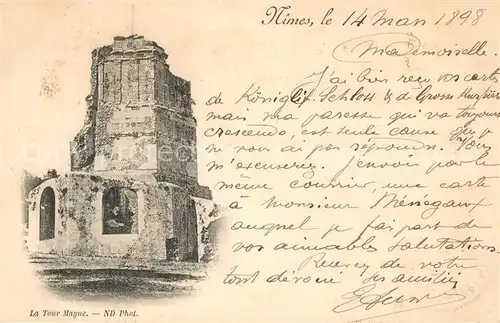 Nîmes, le 14 Mars 1898
Mademoiselle.
J'ai bien reçu vos carts
de Königlis. Schloss & de Grosse
mais ma paresse qui va toujours
crescendo, est seule cause qu je
ne vous ai pas répondu. Vous
m'excuserez. J'envoie par le
même courrier, une carte
à Monsieur Ménégaux
auquel je fais part de
vos aimables salutations.
Recevez de votre
tout dévoué les amitiés
La Tour Magne. — ND Phot.